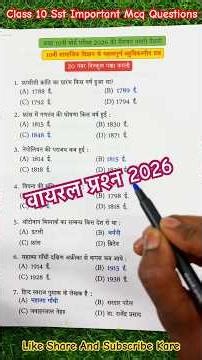 Class 10 Sst Important Mcq Questions
कक्षा 10वीं बोर्ड परीक्षा 2026 की
10वीं सामाजिक विज्ञान के महत्वपूर्ण
20 नंबर बिल्कुल पक्का करलो
1. फ्रांसीसी क्रांति का प्रारंभ किस वर्ष हुआ था?
(A) 1788 ई.
(B) 1789 ई.
(C) 1792 ई.
(D) 1793 ई.
2. फ्रांस में गणतंत्र की घोषणा किस वर्ष हुई :
(A) 1815 ई.
(B) 1830 ई.
(C) 1848 ई.
(D) 1871 ई.
3. नेपोलियन की पराजय कब हुई :
(A)
(B) 1815 ई.
वायरल प्रश्न 2026
4. वियना की
(B) 1798 ई.
(D) 1818 ई.
5. ऑटोवान बिस्मार्क का सम्बन्ध किस देश से था :
(A) इटली
(B) जर्मनी
(C) फ्रांस
(D) ब्रिटेन
6. महात्मा गाँधी दक्षिण अफ्रीका से भारत कब आये :
(A) 1914 ई.
(B) 1915 ई.
(C) 1928 ई.
(D) 1938 ई.
7. हिन्द स्वराज पुस्तक के लेखक हैं :
(A) महात्मा गाँधी
(B) सरदार पटेल
(C) जवाहरलाल नेहरू
(D) डा. राजेन्द्र प्रसाद
Like Share And Subscribe Kare